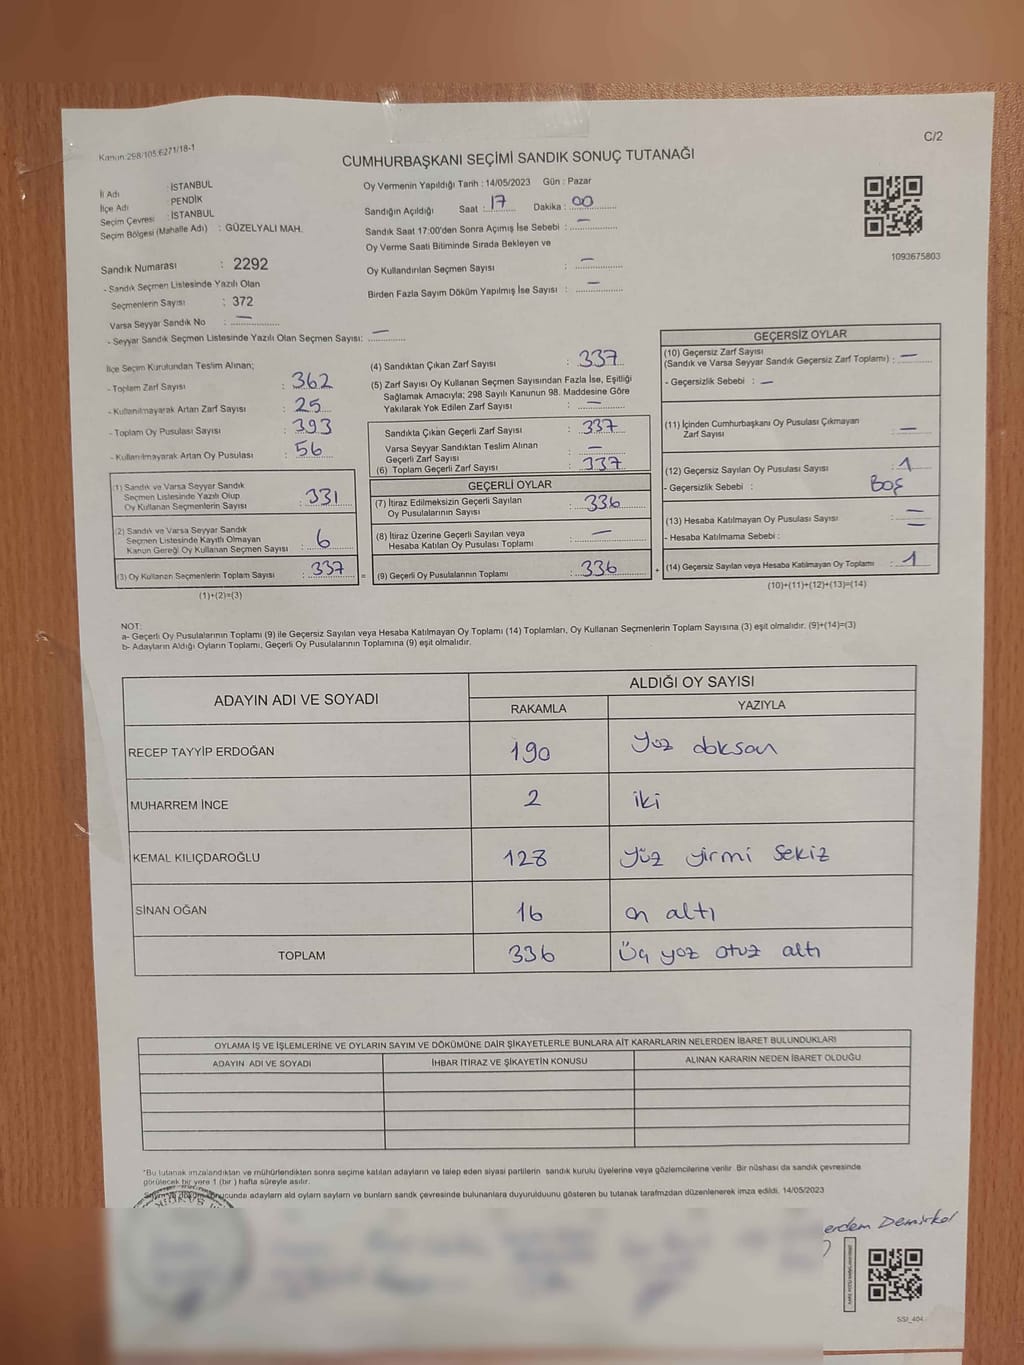 Kanun:298/105:6271/18-1
C/2
CUMHURBAŞKANI SEÇİMİ SANDIK SONUÇ TUTANAĞI
İl Adı : İSTANBUL
İlçe Adı : PENDİK
Seçim Çevresi : İSTANBUL
Seçim Bölgesi (Mahalle Adı) : GÜZELYALI MAH.
Sandık Numarası : 2292
- Sandık Seçmen Listesinde Yazılı Olan
Seçmenlerin Sayısı : 372
Varsa Seyyar Sandık No : —
- Seyyar Sandık Seçmen Listesinde Yazılı Olan Seçmen Sayısı: —
Oy Vermenin Yapıldığı Tarih : 14/05/2023 Gün : Pazar
Sandığın Açıldığı Saat : 17 Dakika : 00
Sandık Saat 17:00'den Sonra Açımış İse Sebebi : —
Oy Verme Saati Bitiminde Sırada Bekleyen ve
Oy Kullandırılan Seçmen Sayısı : —
Birden Fazla Sayım Döküm Yapılmış İse Sayısı : —
1093675803
İlçe Seçim Kurulundan Teslim Alınan;
- Toplam Zarf Sayısı : 362
- Kullanılmayarak Artan Zarf Sayısı : 25
- Toplam Oy Pusulası Sayısı : 393
- Kullanılmayarak Artan Oy Pusulası : 56
(1) Sandık ve Varsa Seyyar Sandık
Seçmen Listesinde Yazılı Olup
Oy Kullanan Seçmenlerin Sayısı : 331
(2) Sandık ve Varsa Seyyar Sandık
Seçmen Listesinde Kayıtlı Olmayan
Kanun Gereği Oy Kullanan Seçmen Sayısı : 6
(3) Oy Kullanan Seçmenlerin Toplam Sayısı : 337
(1)+(2)=(3)
(4) Sandıktan Çıkan Zarf Sayısı : 337
(5) Zarf Sayısı Oy Kullanan Seçmen Sayısından Fazla İse, Eşitliği
Sağlamak Amacıyla; 298 Sayılı Kanunun 98. Maddesine Göre
Yakılarak Yok Edilen Zarf Sayısı : —
Sandıkta Çıkan Geçerli Zarf Sayısı : 337
Varsa Seyyar Sandıktan Teslim Alınan
Geçerli Zarf Sayısı : —
(6) Toplam Geçerli Zarf Sayısı : 337
GEÇERLİ OYLAR
(7) İtiraz Edilmeksizin Geçerli Sayılan
Oy Pusulalarının Sayısı : 336
(8) İtiraz Üzerine Geçerli Sayılan veya
Hesaba Katılan Oy Pusulası Toplamı : —
= (9) Geçerli Oy Pusulalarının Toplamı : 336
GEÇERSİZ OYLAR
(10) Geçersiz Zarf Sayısı
(Sandık ve Varsa Seyyar Sandık Geçersiz Zarf Toplamı) : —
- Geçersizlik Sebebi : —
(11) İçinden Cumhurbaşkanı Oy Pusulası Çıkmayan
Zarf Sayısı : —
(12) Geçersiz Sayılan Oy Pusulası Sayısı : 1
- Geçersizlik Sebebi : BOŞ
(13) Hesaba Katılmayan Oy Pusulası Sayısı : —
- Hesaba Katılmama Sebebi : —
+ (14) Geçersiz Sayılan veya Hesaba Katılmayan Oy Toplamı : 1
(10)+(11)+(12)+(13)=(14)
NOT:
a- Geçerli Oy Pusulalarının Toplamı (9) ile Geçersiz Sayılan veya Hesaba Katılmayan Oy Toplamı (14) Toplamları, Oy Kullanan Seçmenlerin Toplam Sayısına (3) eşit olmalıdır. (9)+(14)=(3)
b- Adayların Aldığı Oyların Toplamı, Geçerli Oy Pusulalarının Toplamına (9) eşit olmalıdır.
ADAYIN ADI VE SOYADI ALDIĞI OY SAYISI
RAKAMLA YAZIYLA
RECEP TAYYİP ERDOĞAN 190 Yüz doksan
MUHARREM İNCE 2 iki
KEMAL KILIÇDAROĞLU 128 Yüz yirmi sekiz
SİNAN OĞAN 16 on altı
TOPLAM 336 Üç yüz otuz altı
OYLAMA İŞ VE İŞLEMLERİNE VE OYLARIN SAYIM VE DÖKÜMÜNE DAİR ŞİKAYETLERLE BUNLARA AİT KARARLARIN NELERDEN İBARET BULUNDUKLARI
ADAYIN ADI VE SOYADI İHBAR İTİRAZ VE ŞİKAYETİN KONUSU ALINAN KARARIN NEDEN İBARET OLDUĞU
*Bu tutanak imzalandıktan ve mühürlendikten sonra seçime katılan adayların ve talep eden siyasi partilerin sandık kurulu üyelerine veya gözlemcilerine verilir. Bir nüshası da sandık çevresinde
görülecek bir yere 1 (bir ) hafta süreyle asılır.
adayların ald oyların sayların ve bunların sandk çevresinde bulunanlara duyurulduunu gösteren bu tutanak tarafmzdan düzenlenerek imza edildi. 14/05/2023
erdem Demirkol
SSI_404